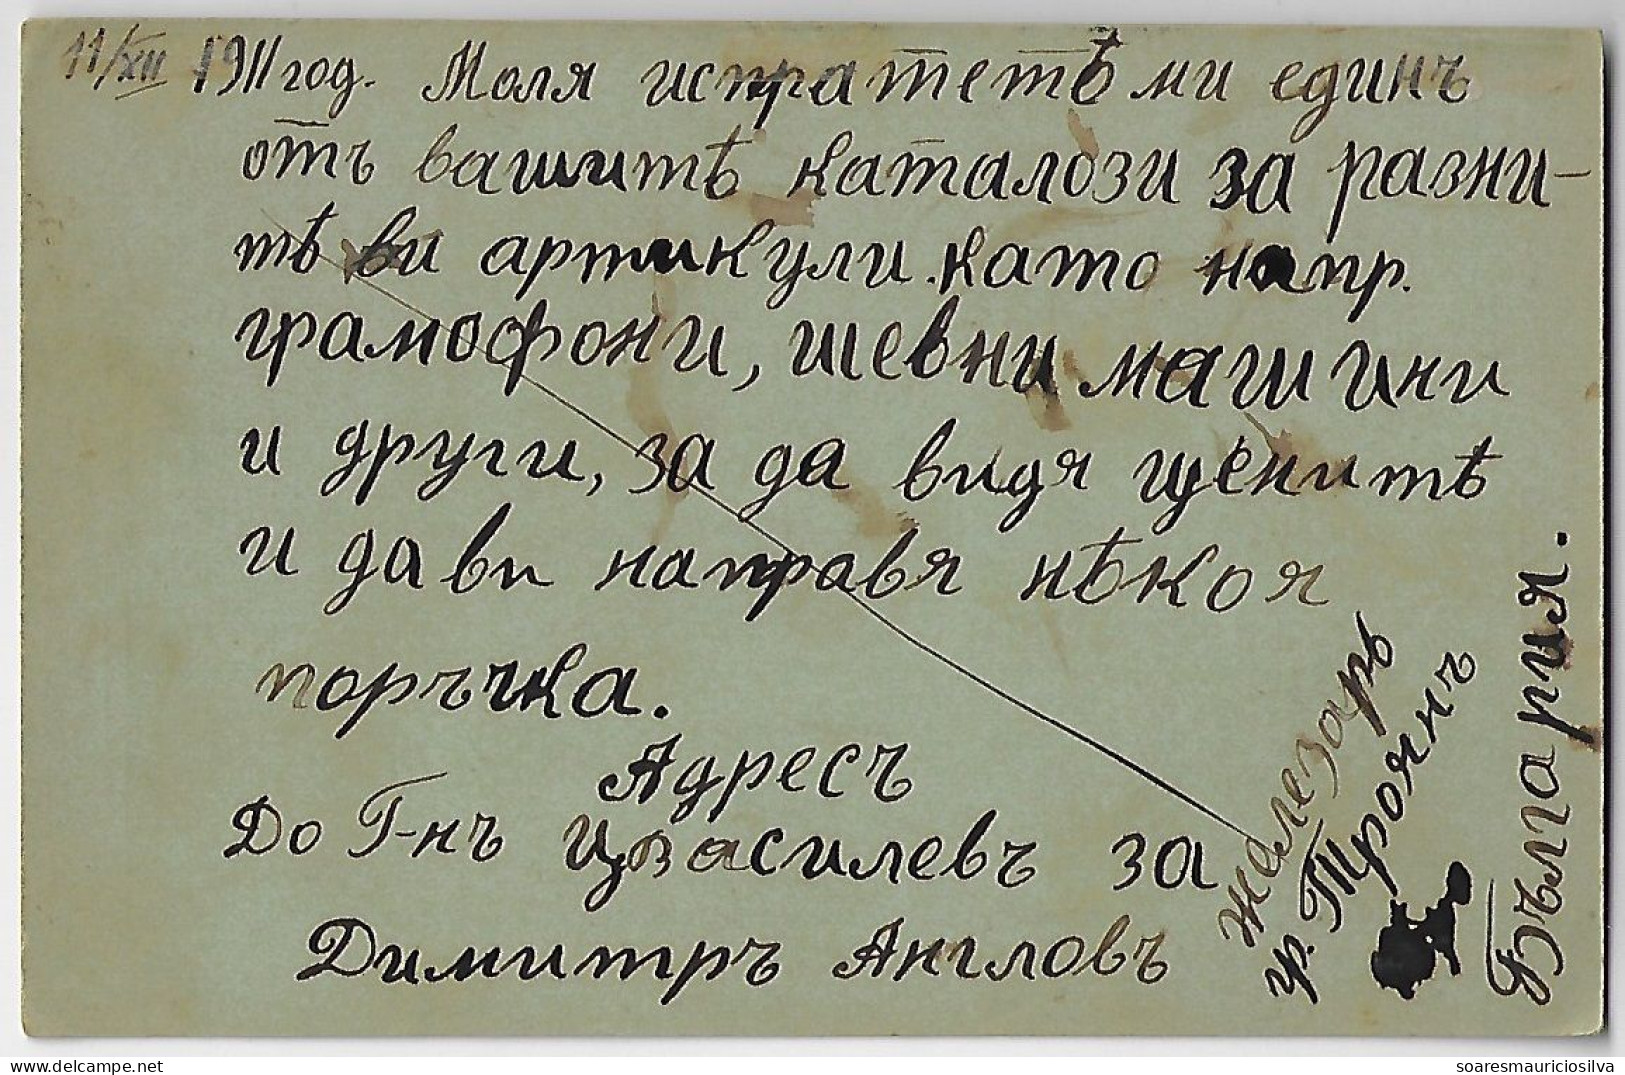 11/XII 1911 год. Моля испратетѣ ми единъ
отъ вашитѣ каталози за разни-
тѣ ви артикули. като напр.
грамофони, шевни машини
и други, за да видя ценитѣ
и да ви направя нѣкоя
поръчка.
Адресъ
До Г-нъ Ц. Василевъ за
Димитръ Англовъ
Железарь
гр. Троянъ
Бългaрия.
soaresmauriciosilva